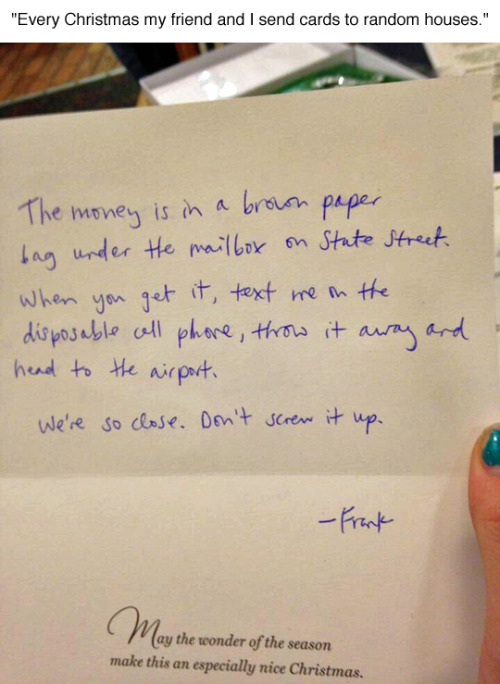 "Every Christmas my friend and I send cards to random houses."
The money is in a brown paper
bag under the mailbox on State Street.
When you get it, text me on the
disposable cell phone, throw it away and
head to the airport.
We're so close. Don't screw it up.
-Frank
May the wonder of the season
make this an especially nice Christmas.